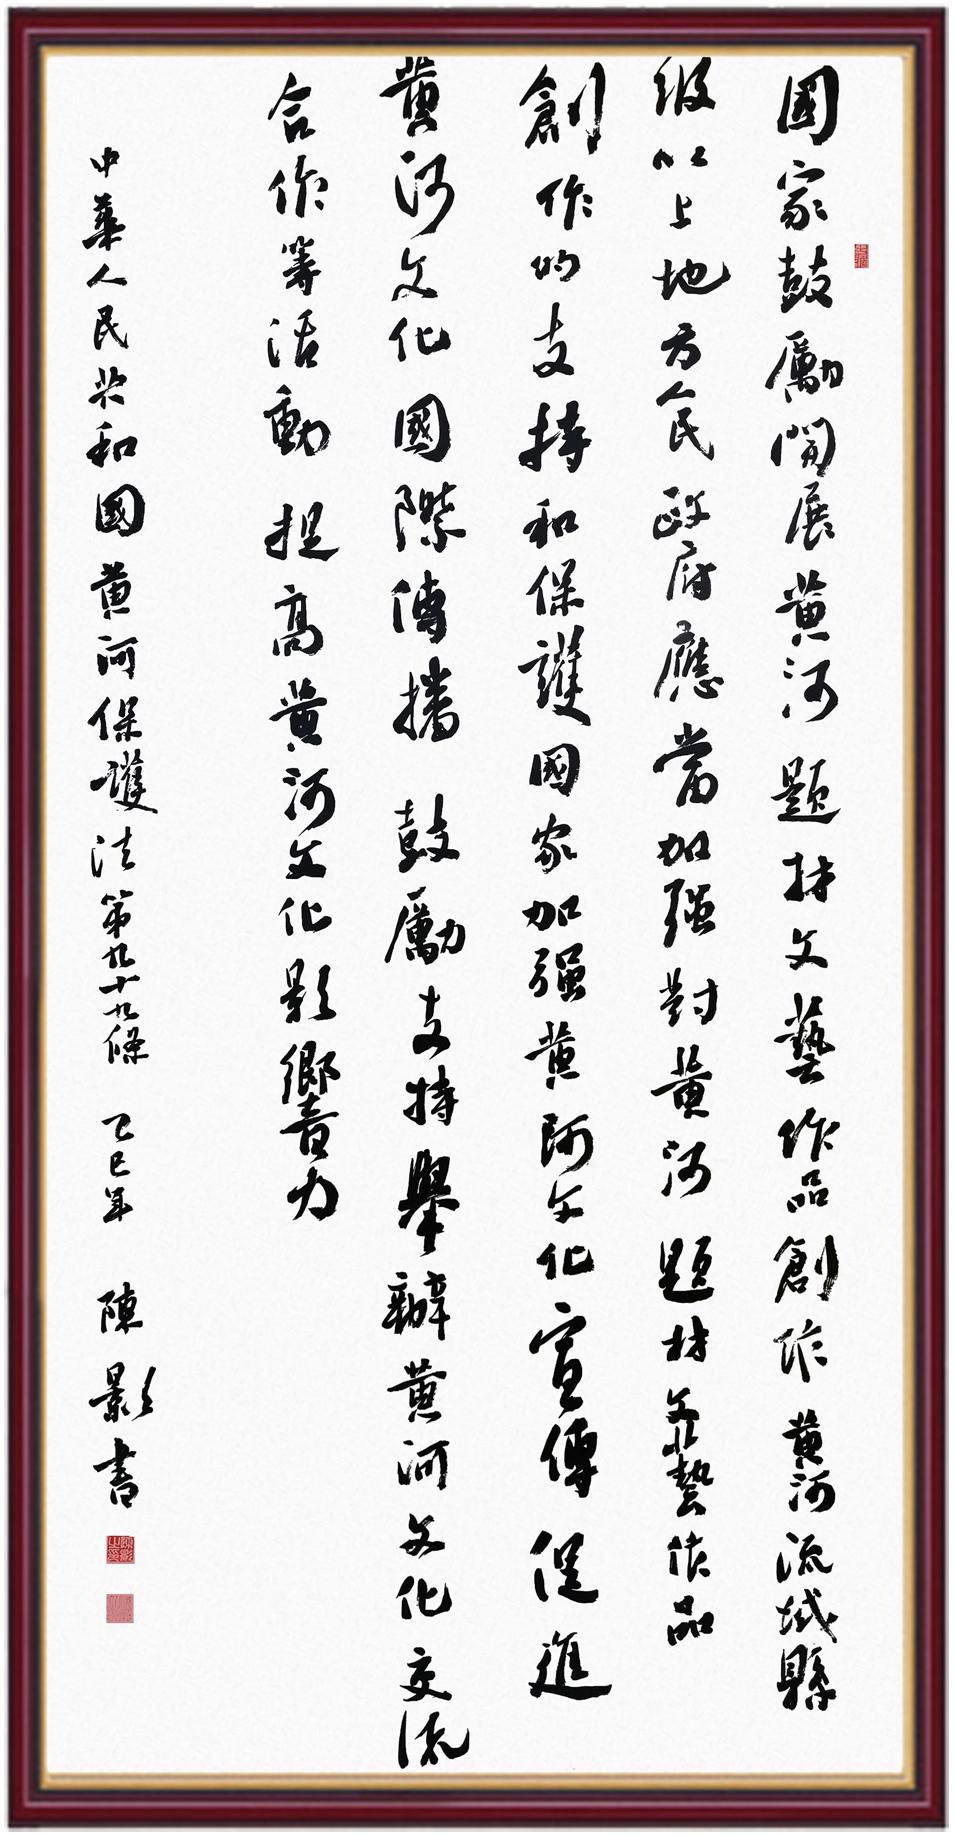 國家鼓勵開展黄河題材文藝作品創作黄河流域縣
级以上地方人民政府應當加强對黄河題材文藝作品
創作的支持和保護國家加强黄河文化宣傳促進
黄河文化國際傳播鼓勵支持舉辦黄河文化交流
合作等活動提高黄河文化影響力
中華人民共和國黄河保護法第九十九條 乙巳年 陳影書